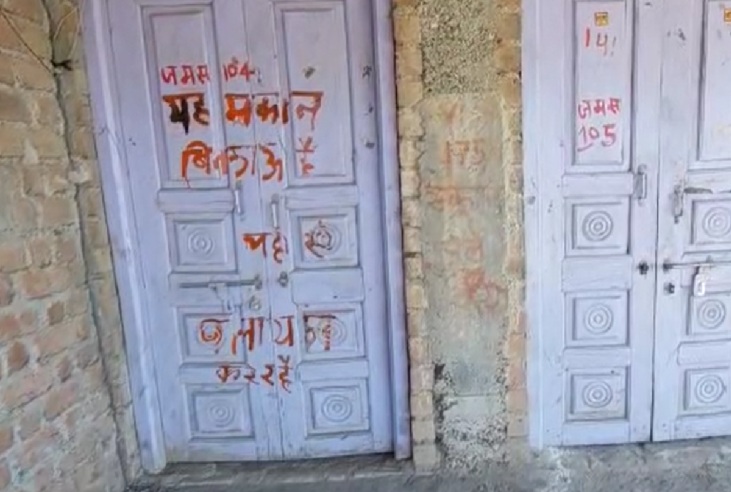 जमस 104
यह मकान
बिकाऊ है
यहां से
पलायन
कर रहे
14
जमस
105
175